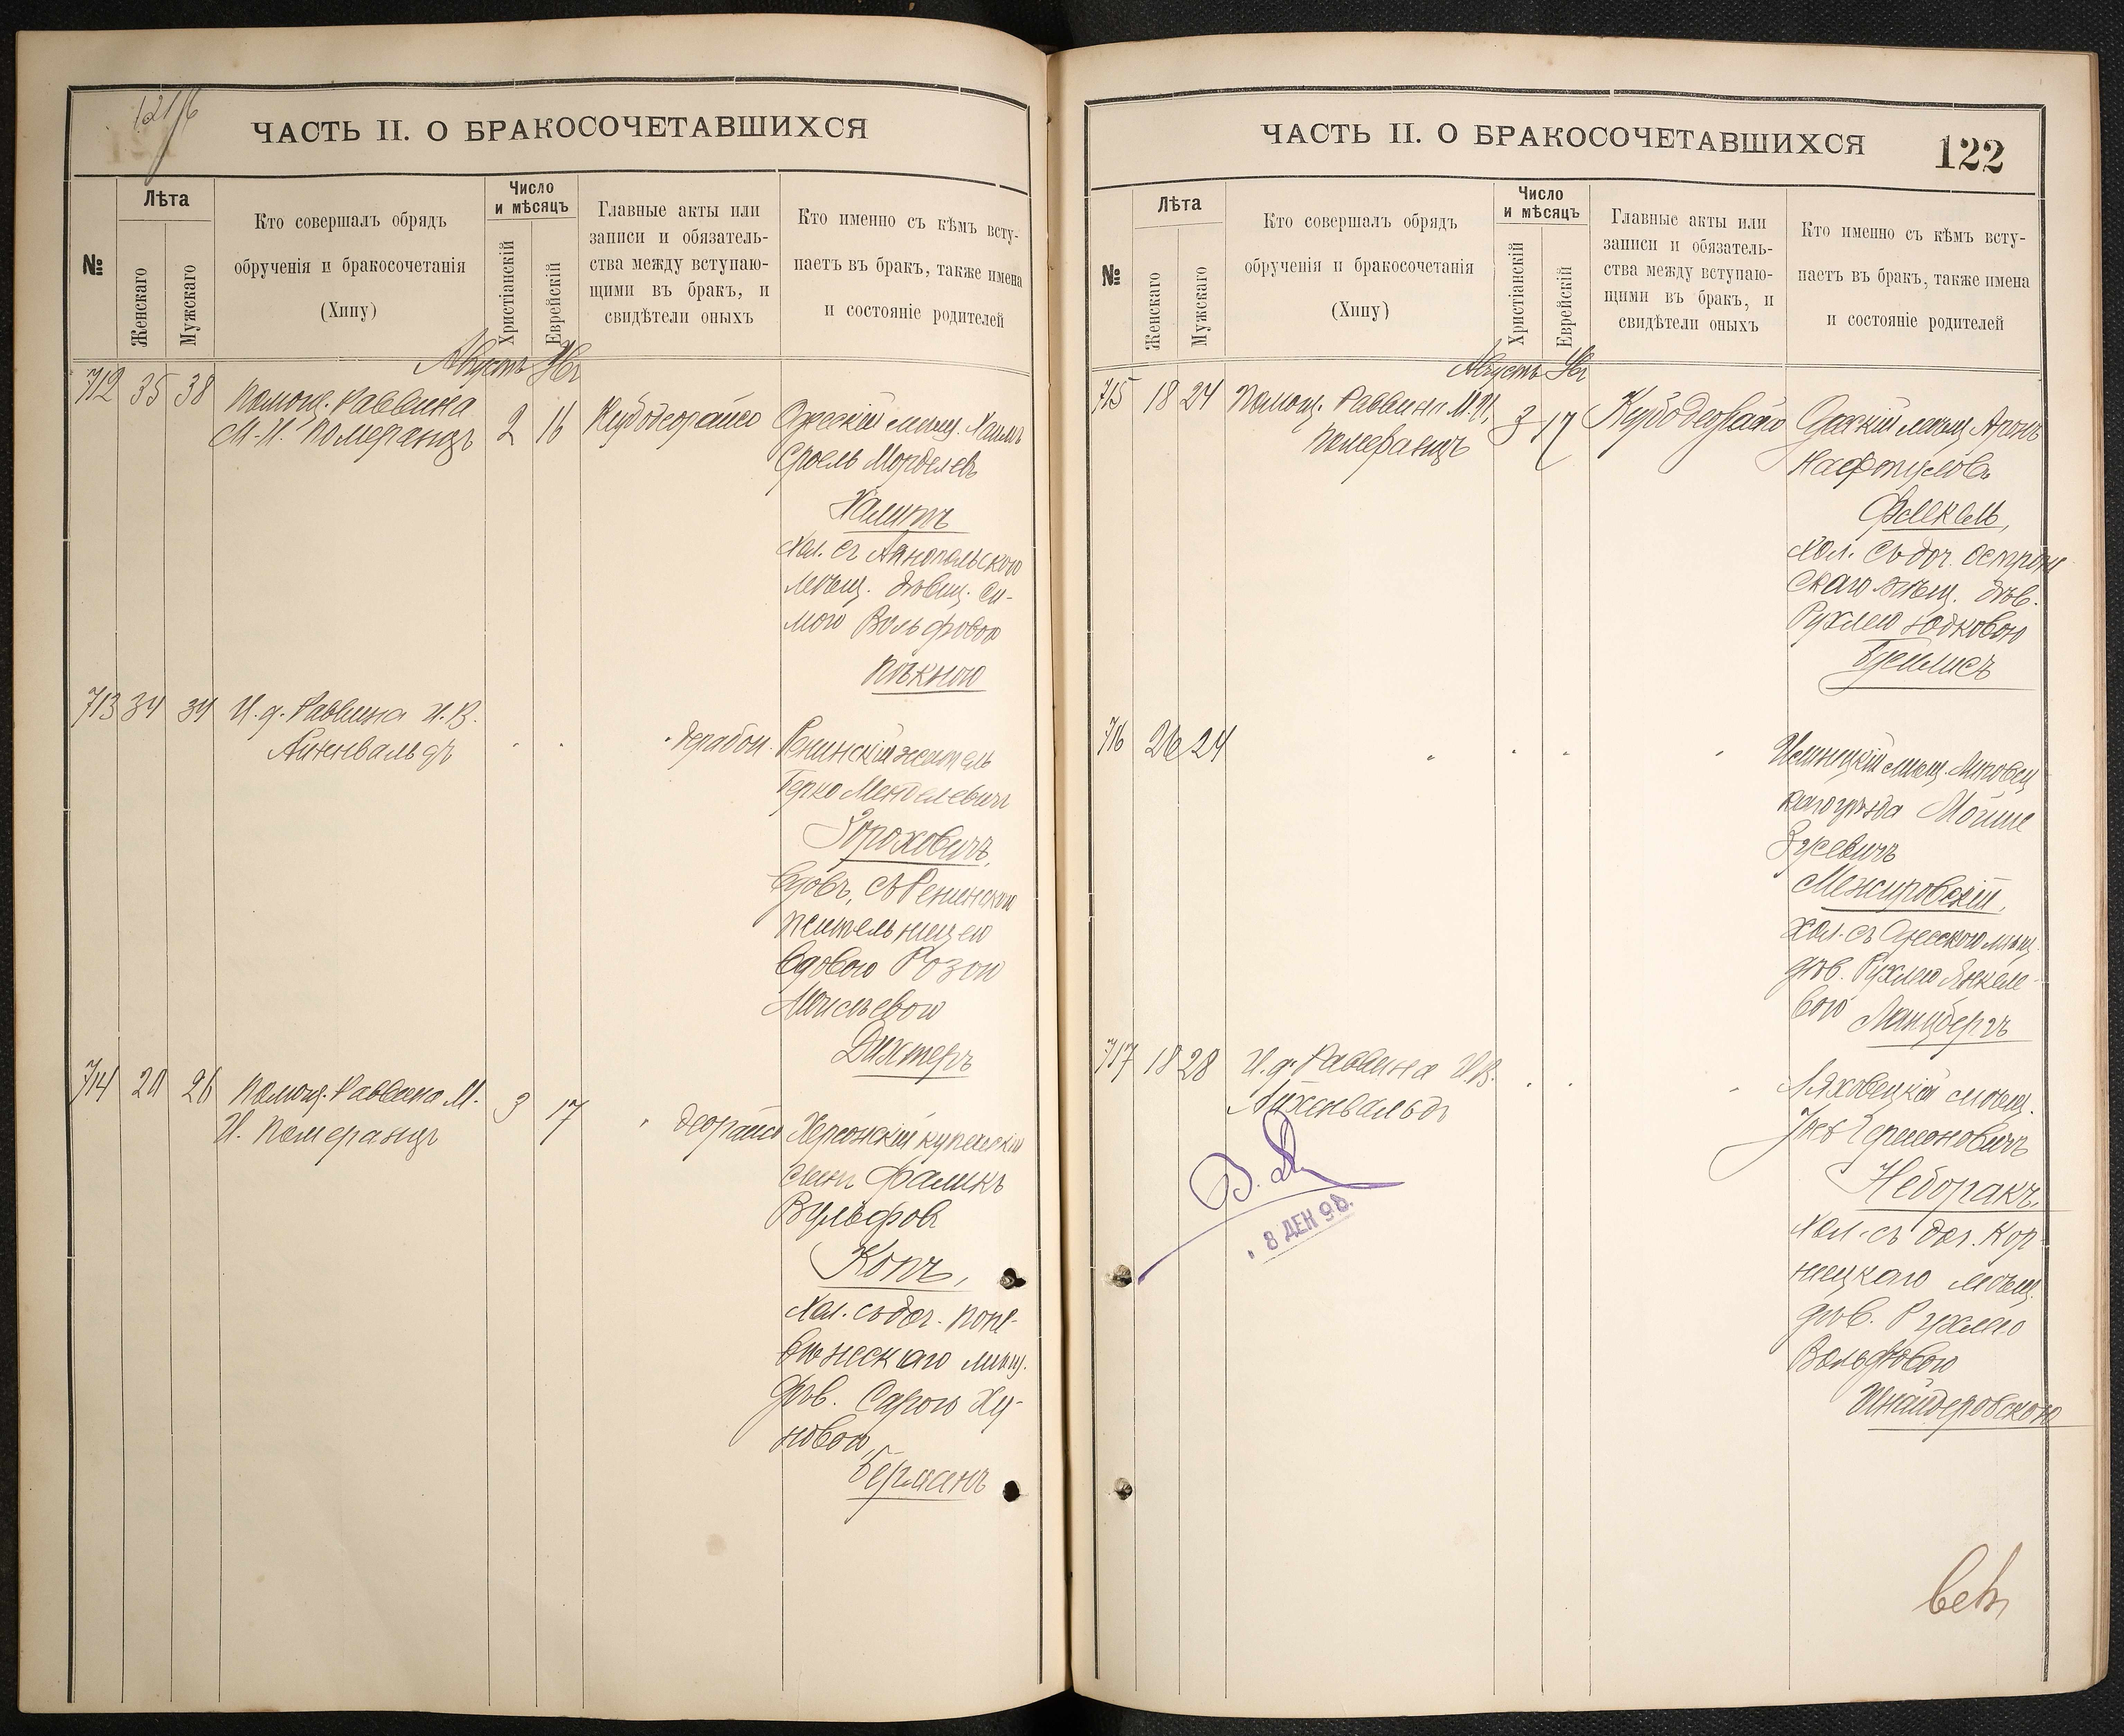 121/б
ЧАСТЬ II. О БРАКОСОЧЕТАВШИХСЯ
№
Лѣта
Женскаго
Мужскаго
Кто совершалъ обрядъ
обрученія и бракосочетанія
(Хипу)
Число
и мѣсяцъ
Христіанскій
Еврейскій
Главные акты или
записи и обязатель-
ства между вступаю-
щими въ бракъ, и
свидѣтели оныхъ
Кто именно съ кѣмъ всту-
паетъ въ бракъ, также имена
и состояніе родителей
Августъ
712 35 38
Помощ. Раввина
М. И. Померанцъ
2 16
Одесскій мѣщ. Хаимъ
Сроель Морделевъ
Халитъ
хол. съ Аннопольскою
мѣщ. дѣвиц. Си-
мою Вольфовою
Пѣкною
713 34 34
И. д. Раввина И. В.
Айхенвальдъ
Ренинскій житель
Герко Менделевичъ
Гороховичъ,
вдовъ, съ Ренинскою
жительницею
вдовою Розою
Моисѣевою
Дихтеръ
714 20 26
Помощ. Раввина М.
И. Померанцъ
3 17
деорайсо
Херсонскій купеческій
сынъ Фаликъ
Вульфовъ
Копъ,
хол. съ доч. Поне-
вѣжскаго мѣщ.
дѣв. Сарою Ху-
новою
Бергманъ
ЧАСТЬ II. О БРАКОСОЧЕТАВШИХСЯ
122
№
Лѣта
Женскаго
Мужскаго
Кто совершалъ обрядъ
обрученія и бракосочетанія
(Хипу)
Число
и мѣсяцъ
Христіанскій
Еврейскій
Главные акты или
записи и обязатель-
ства между вступаю-
щими въ бракъ, и
свидѣтели оныхъ
Кто именно съ кѣмъ всту-
паетъ въ бракъ, также имена
и состояніе родителей
Августъ
715 18 24
Помощ. Раввина М. И.
Померанцъ
3 17
Одесскій мѣщ. Аронъ
Нафтуловъ
Флекель,
хол. съ доч. Острож
скаго мѣщ. дѣв.
Рухлею Юдковою
716 26 24
мѣщ. Липовец
каго уѣзда Мойше
Зусевичъ
Межировскій,
хол. съ Одесскою мѣщ.
дѣв. Рухлею Янкеле-
вою Ланцбергъ
717 18 28
И. д. Раввина И. В.
Айхенвальдъ
8 ДЕК 98.
Ляховецкій мѣщ.
Іосъ Гершоновичъ
Неборакъ,
хол. съ доч. Кор-
ницкаго мѣщ.
дѣв. Рухлею
Вольфовою
Шнайдеровскою